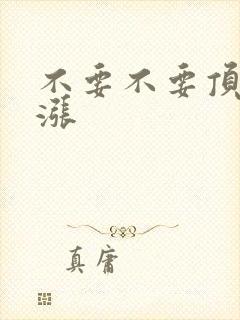 不要不要頂
漲
真庸